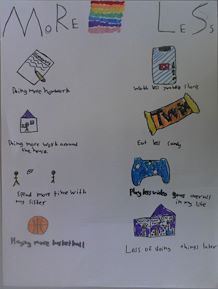 MoRe LeSs
Doing more homework
Watch less youtube shorts
Doing more work around
the house
Twix
Eat less candy
Spend more time with
my sister
Play less video games overall
in my life
Playing more basketball
Less of doing things later